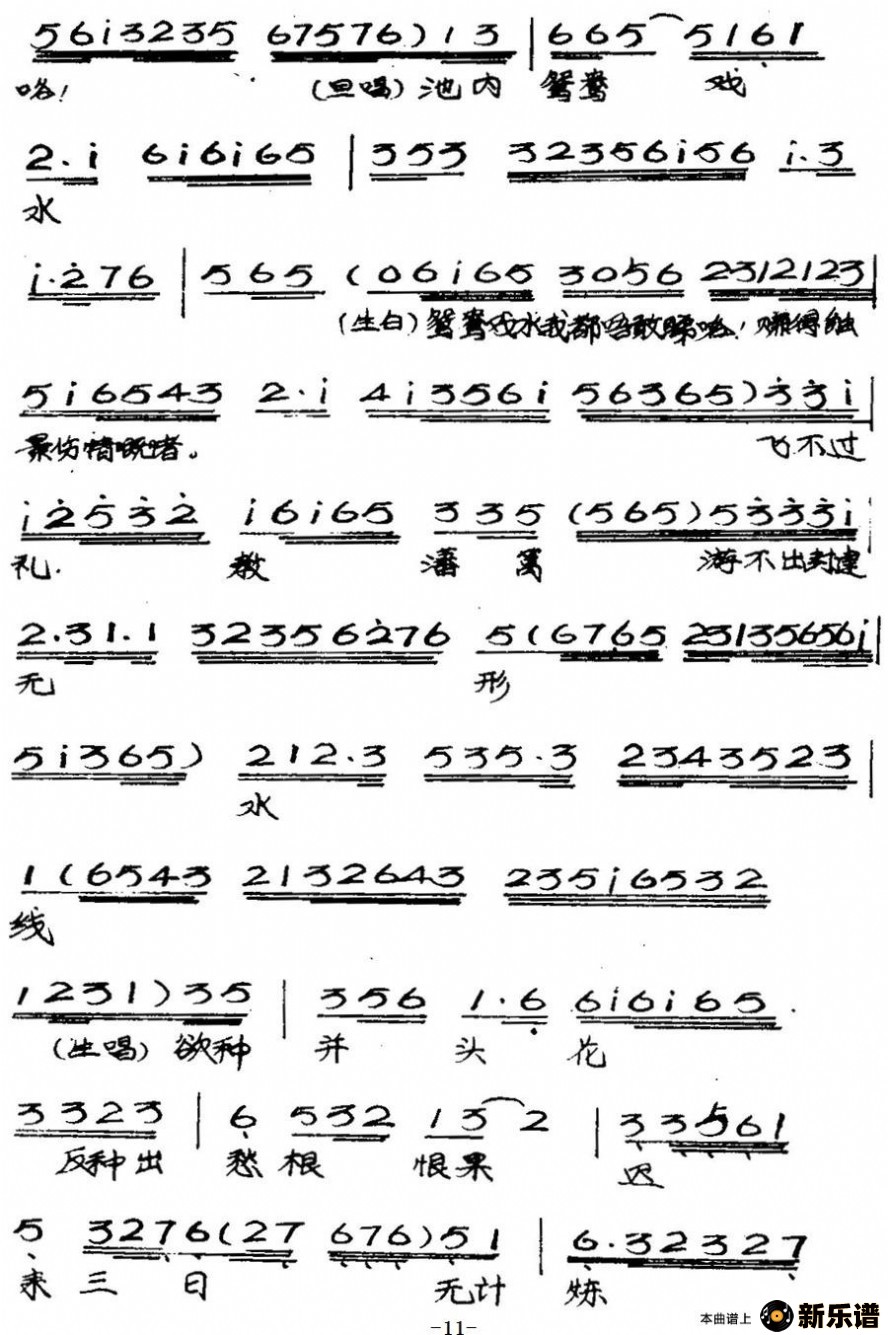 5 6 i 3 2 3 5 6 7 5 7 6 ) 1 3 | 6 6 5 5 1 6 1
咯！ (旦唱) 池内 鸳鸯 戏
2 . i 6 i 6 i 6 5 | 3 5 3 3 2 3 5 6 i 5 6 i . 3
水
i . 2 7 6 | 5 6 5 ( 0 6 i 6 5 3 0 5 6 2 3 1 2 1 2 3 |
(生白) 鸳鸯戏水我都唔敢睇咯！
5 i 6 5 4 3 2 . i 4 i 3 5 6 i 5 6 3 6 5 ) 3 3 i |
最伤情嘅啫。 飞不过
i 2 5 3 2 i 6 i 6 5 3 3 5 ( 5 6 5 ) 5 3 3 3 i |
礼. 教 藩 篱 游不出封建
2 . 3 1 . 1 3 2 3 5 6 2 7 6 5 ( 6 7 6 5 2 3 1 3 5 6 5 6 i |
无 形
5 i 3 6 5 ) 2 1 2 . 3 5 3 5 . 3 2 3 4 3 5 2 3 |
水
1 ( 6 5 4 3 2 1 3 2 6 4 3 2 3 5 i 6 5 3 2
线
1 2 3 1 ) 3 5 | 3 5 6 1 . 6 6 i 6 i 6 5
(生唱) 欲种 并 头 花
3 3 2 3 | 6 5 3 2 1 3 2 | 3 3 5 6 1
反种出 愁根 恨果 迟
5 3 2 7 6 ( 2 7 6 7 6 ) 5 1 | 6 . 3 2 3 2 7
来 三 日 无计 炼
-11-
本曲谱上 新乐谱